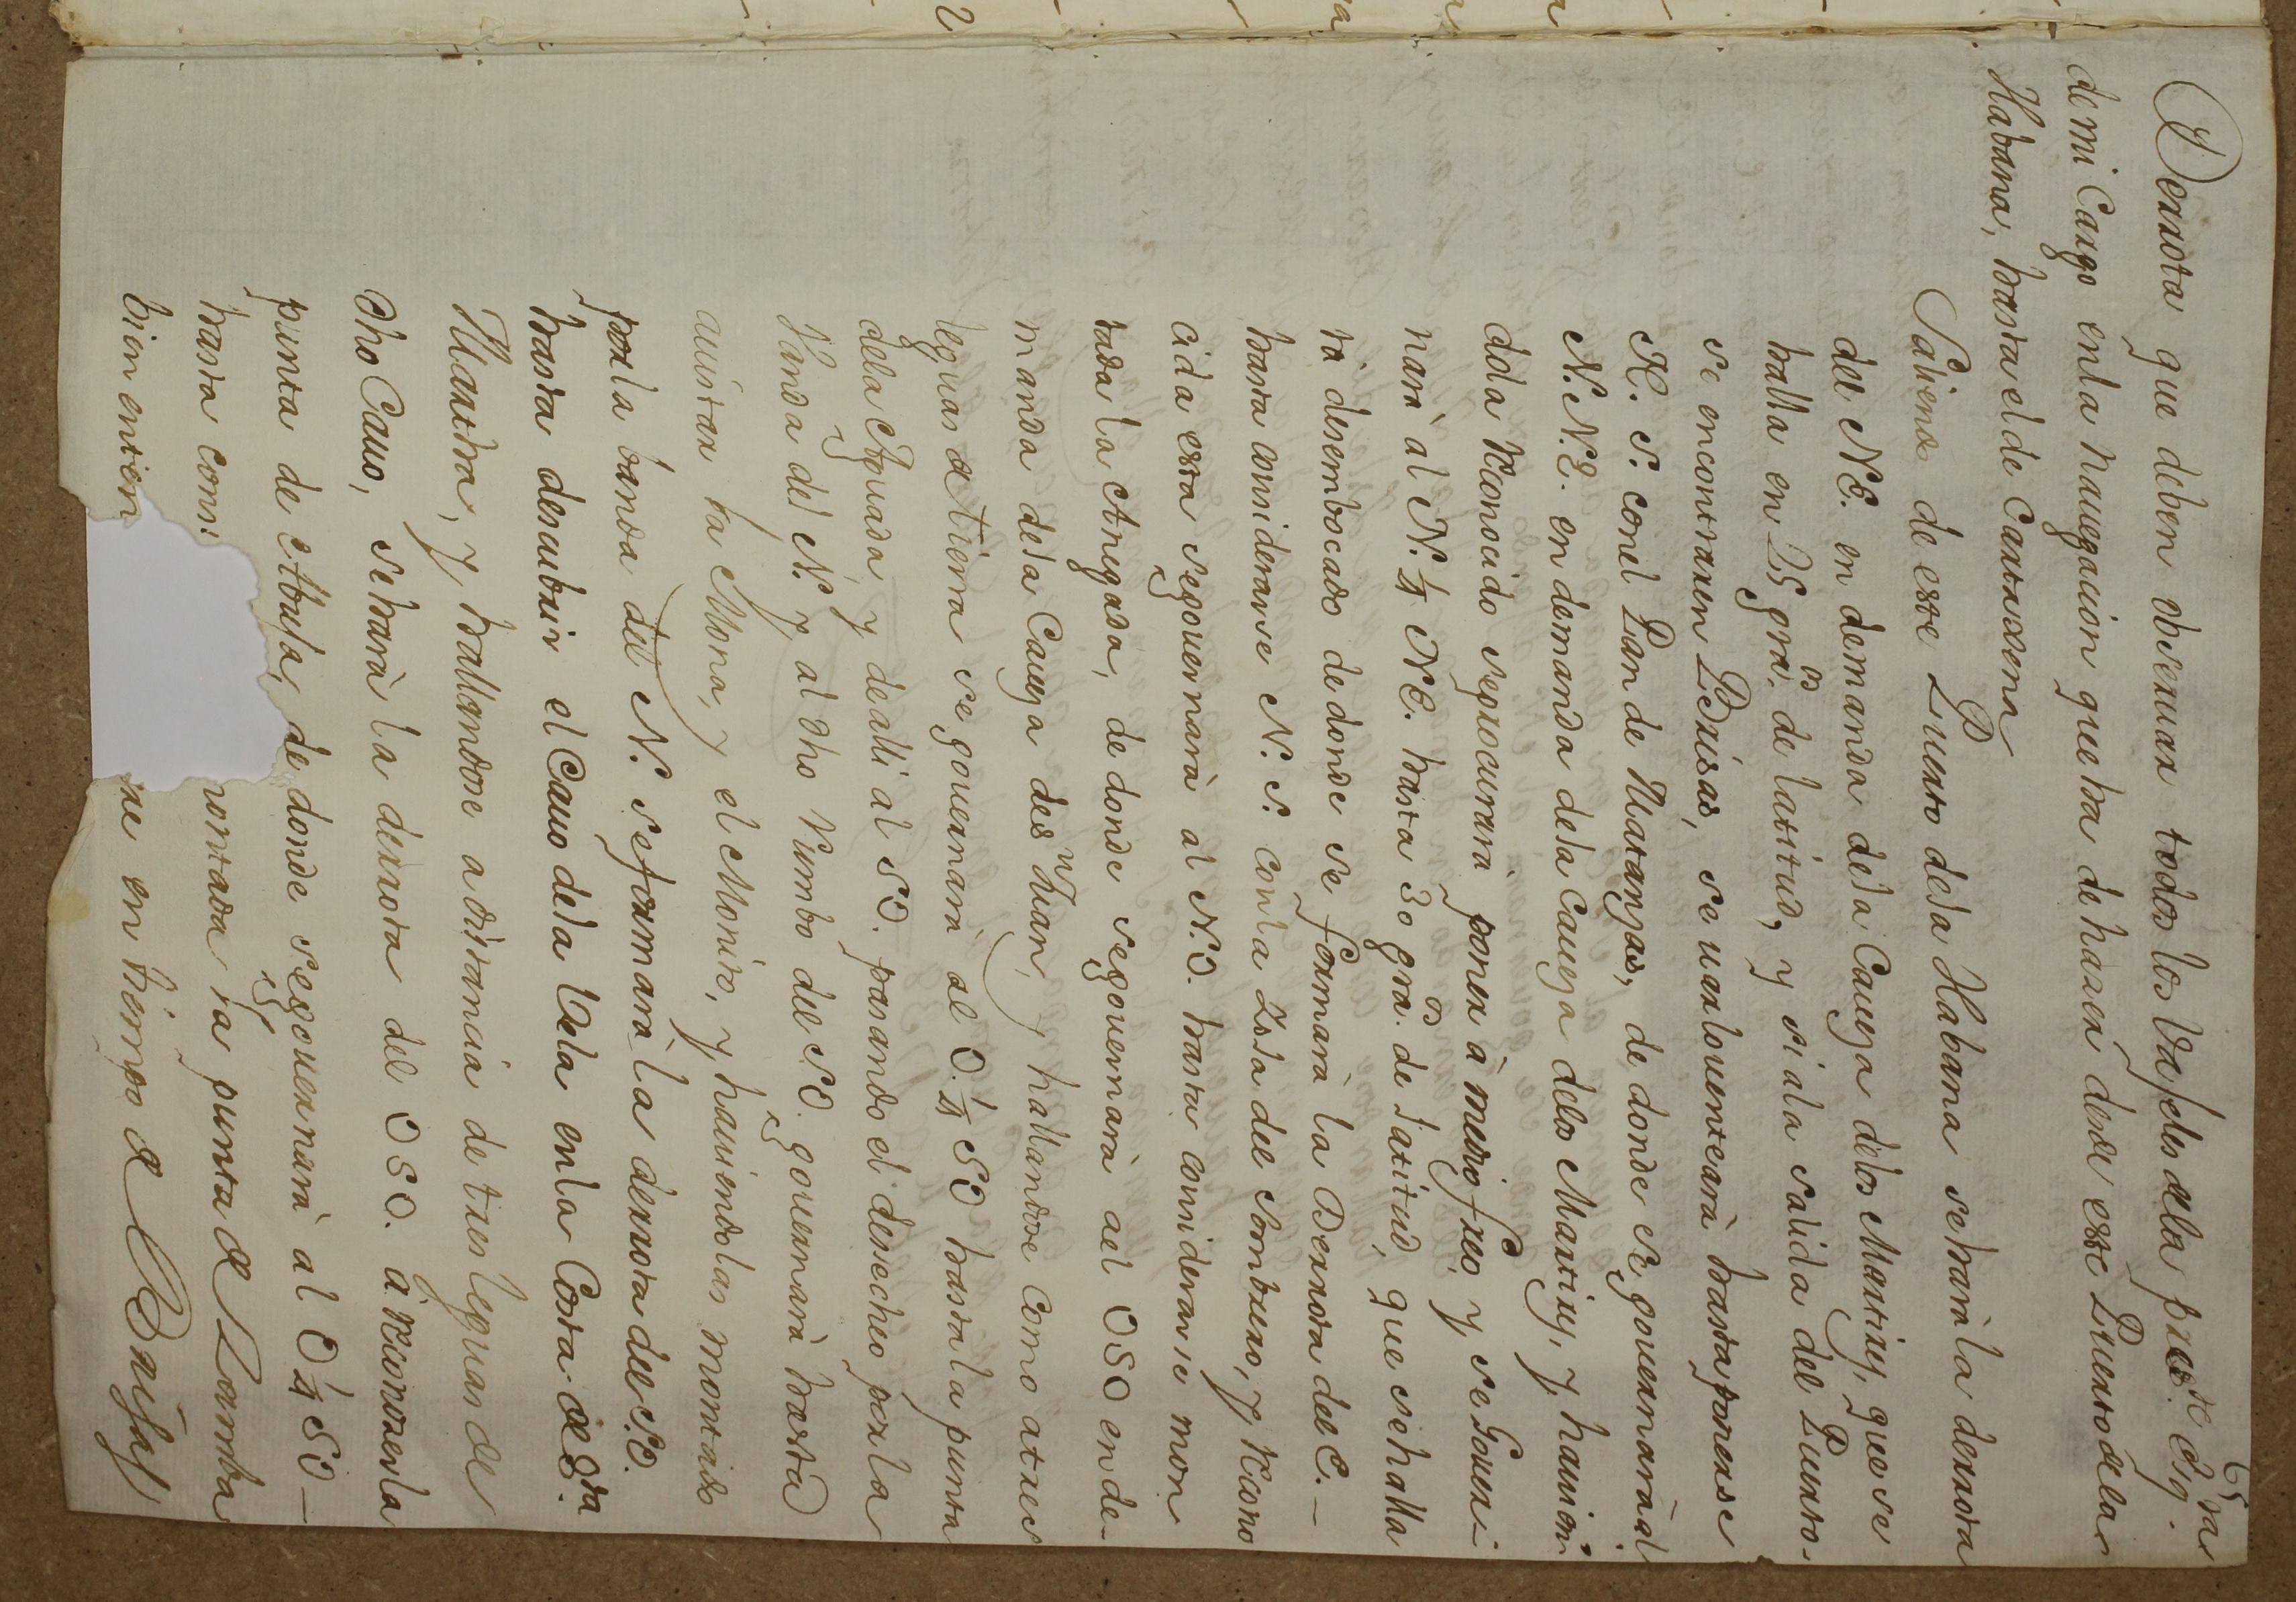 65
Derrota que deben observar todos los Vajeles de la pres.te Esq.ra
de mi Cargo en la navegacion que ha de hazer desde este Puerto de la
Habana, hasta el de Cartaxena
Saliendo de este Puerto de la Habana se hará la derrota
del NE. en demanda de la Caveza de los Martires, que se
halla en 25 gra.os de latitud, y si a la salida del Puerto
se encontraren Brisas, se varloventeará hasta ponerse
N. S. con el Pan de Matanzas, de donde se governará al
N.N.E. en demanda de la Caveza de los Martires, y havien
dola reconocido se procurará poner á medio freo, y se Gover-
nará al N. ¼ NE. hasta 30 gra.os de latitud, que se halla
rá desembocado de donde se formará la Derrota del E. -
hasta considerarse N. S. con la Isla del Sombrero, y recono
cida esta se governará al N.O. hasta considerarse mon
tada la Anegada, de donde se governará al OSO en de-
manda de la Caveza de S.n Juan, y hallandose como a tres
leguas de tierra se governará al O. ¼ SO hasta la punta
de la Aguada, y de alli al SO. pasando el desecheo por la
vanda del N. y al dho rumbo del SO. governará hasta
avistar la Mona, y el Monito, y haviendolas montado
por la banda del N. se formará la derrota del SO.
hasta descubrir el Cavo de la Vela en la Costa de S.ta
Martha, y hallandose a distancia de tres leguas de
dho Cavo, se hará la derrota del OSO. á reconoxer la
punta de Abuja, de donde se governará al O ¼ SO -
hasta consi ontada la punta de Zamba
bien enten se en tiempo de Brisas